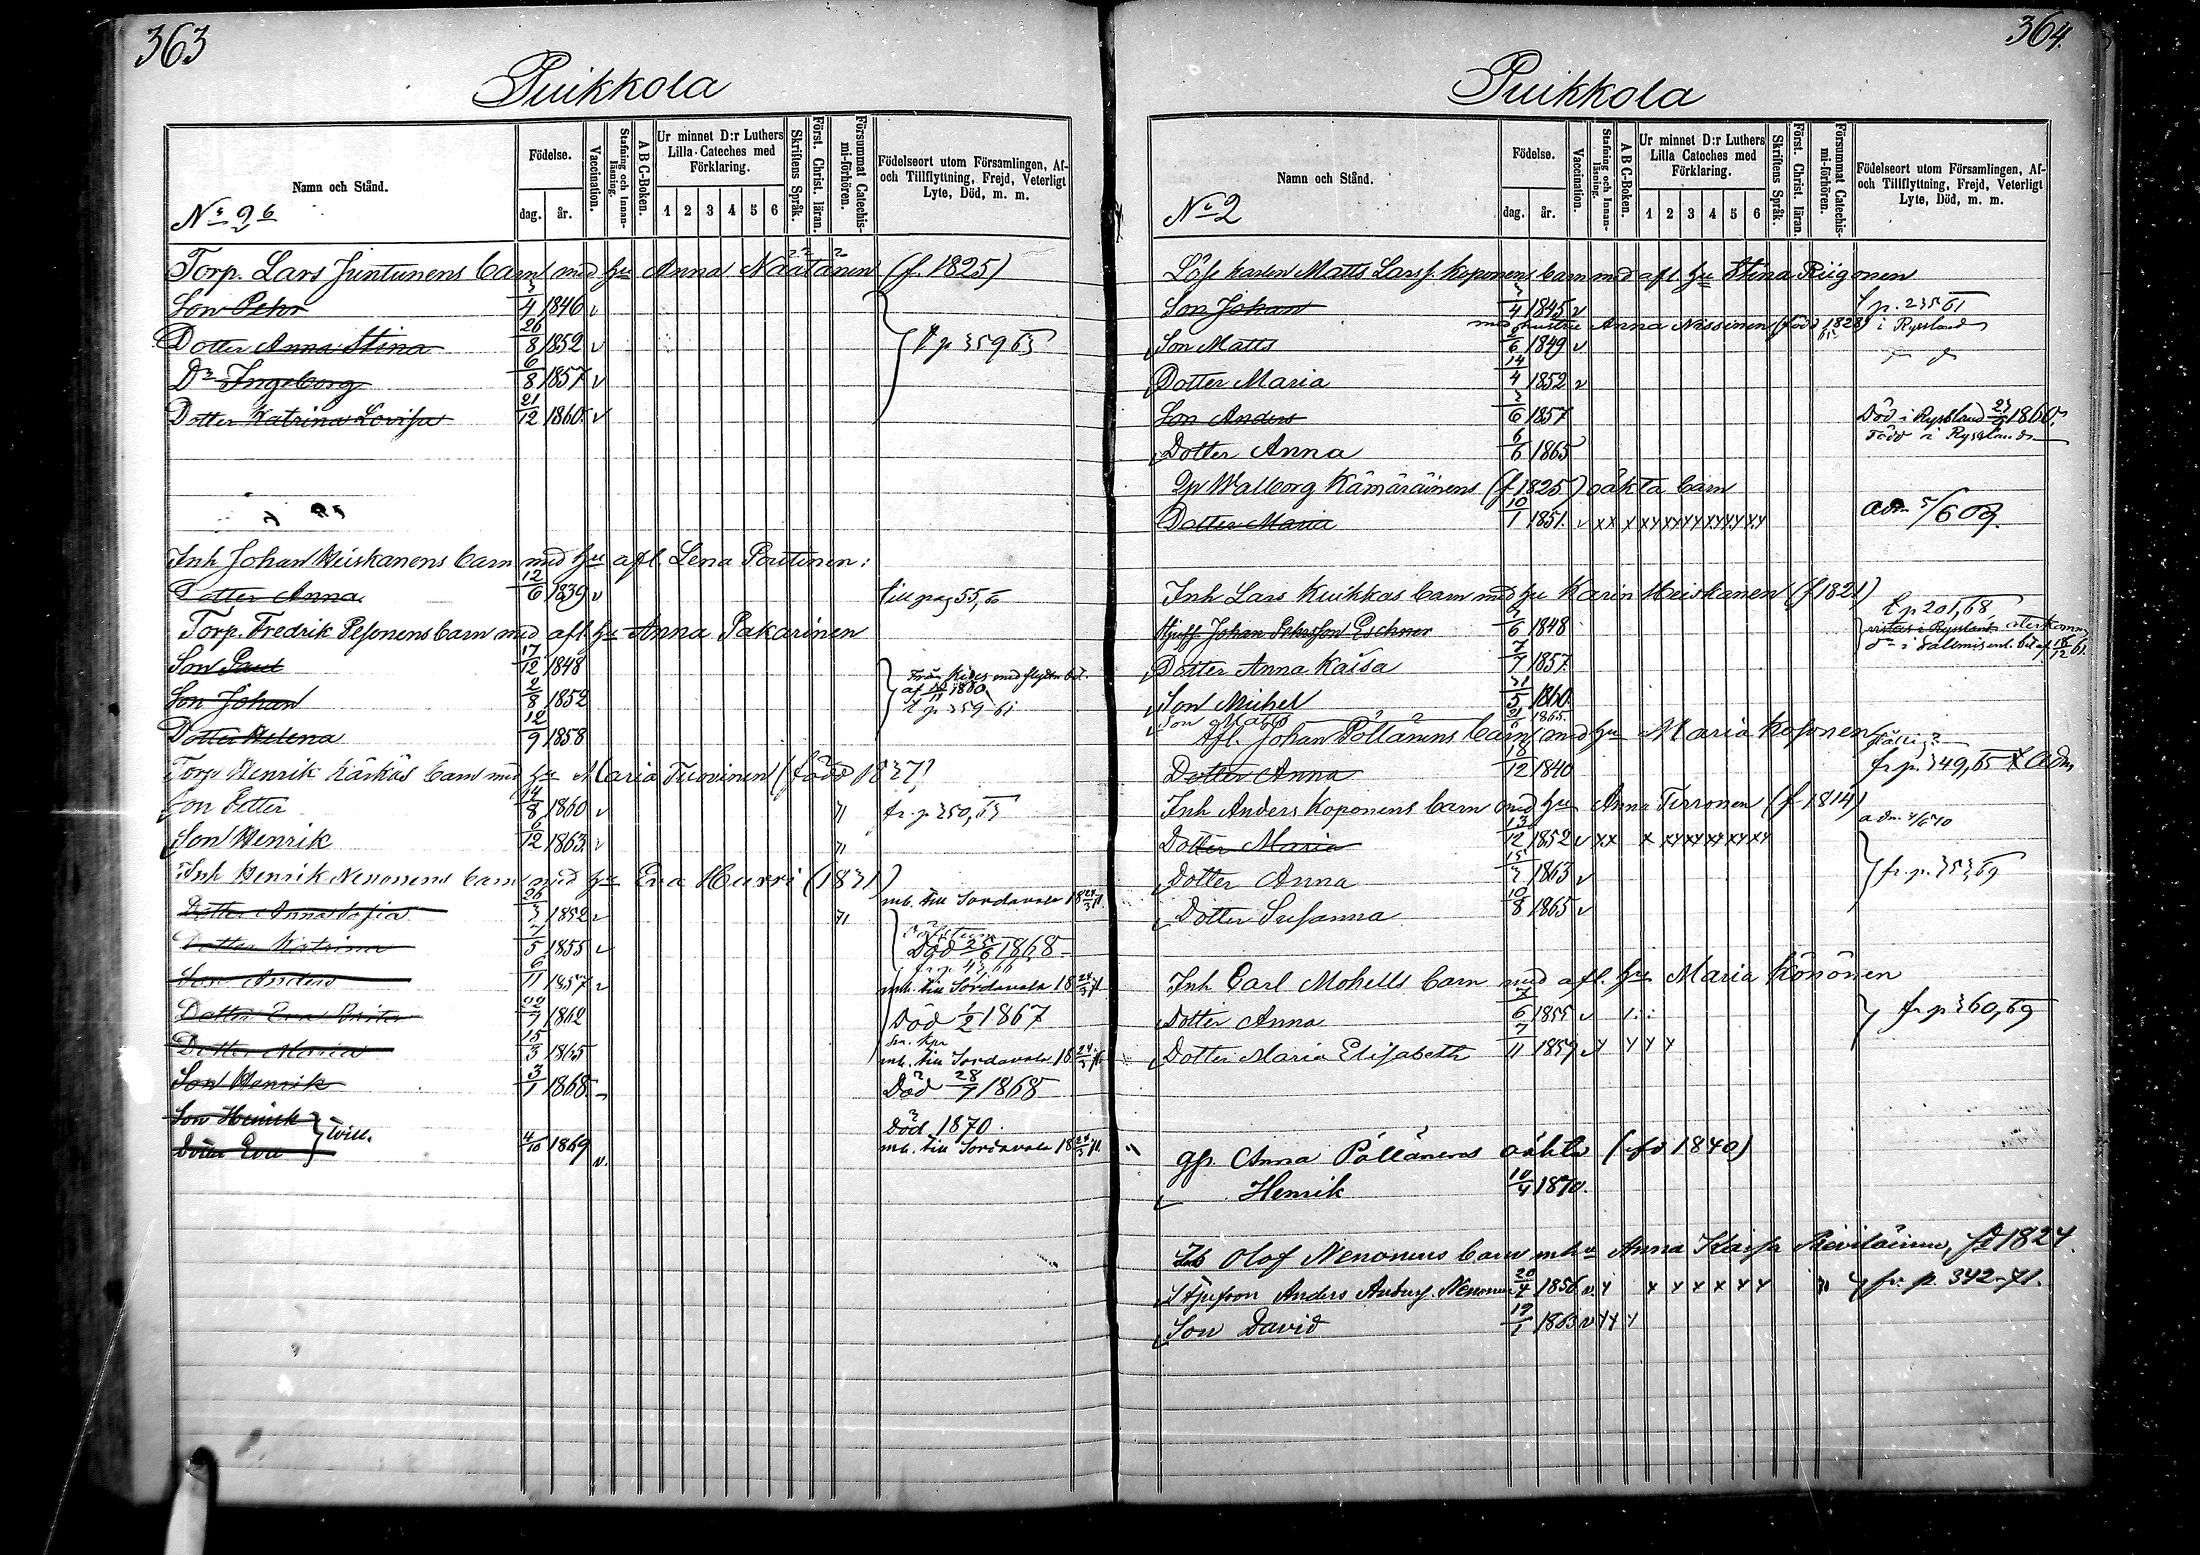 363
Puikkola
Namn och Stånd.
Födelse.
dag.
år.
Vaccination.
Stafning och Innanläsning.
A B C-Boken.
Ur minnet D:r Luthers Lilla Cateches med Förklaring.
1 2 3 4 5 6
Skriftens Språk.
Först. Christ. läran.
Försummat Catechismi-förhören.
Födelseort utom Församlingen, Af- och Tillflyttning, Frejd, Veterligt Lyte, Död, m. m.
No 26
Torp. Lars Juntunens barn med hu Anna Näätänen (f. 1825)
Son Pehr 3/4 1846 v
Dotter Anna Stina 26/8 1852 v t p 359 63
Do Ingeborg 6/8 1857 v
Dotter Katrina Lovisa 21/12 1860 v
Inh Johan Heiskanens barn med hu afl. Lena Poutinen:
Dotter Anna 12/6 1839 v till pag 55,
Torp. Fredrik Pesonens barn med afl hu Anna Pakarinen
Son Paul 17/12 1848
Son Johan 2/8 1852
Från Kides med flyttn bet. af 1860
t p 359 61
Dotter Helena 12/9 1858
Torp Henrik Kärkäs barn med hu Maria Tuovinen (född 1837)
Son Petter 14/8 1860 v " fr. p 350, 63
Son Henrik 6/12 1863 v "
Inh Henrik Nenonens barn med hu Eva Hurri (1831)
Dotter Anna Sofia 26/3 1852 v " mb. till Sordavala 18 24/3 71.
Dotter Katrina 7/5 1855 v Död 25/6 1868
fr p. 43,66
Son Anders 6/11 1857 v mb. till Sordavala 18 24/3 71
Dotter Eva Brita /7 1862 Död 1/2 1867
Dotter Maria 15/3 1865 mb. till Sordavala 18 24/3 71.
Son Henrik 3/1 1868 Död 28/7 1868
Son Henrik } Död 1870.
Dotter Eva } Tvill. 4/10 1869 v. mb. till Sordavala 18 24/3 71.
364.
Puikkola
Namn och Stånd.
Födelse.
dag.
år.
Vaccination.
Stafning och Innanläsning.
A B C-Boken.
Ur minnet D:r Luthers Lilla Cateches med Förklaring.
1 2 3 4 5 6
Skriftens Språk.
Först. Christ. läran.
Försummat Catechismi-förhören.
Födelseort utom Församlingen, Af- och Tillflyttning, Frejd, Veterligt Lyte, Död, m. m.
No 2
Löse karlen Matts Larss. Koponens barn med afl. hu Stina Riigonen
Son Johan 3/4 1845 v t p. 235 61
med hustru Anna Nissinen (född 1828) i Ryssland
Son Matts /6 1849 v
Dotter Maria 14/4 1852 v
Son Anders 3/6 1857 Död i Ryssland 1860.
Dotter Anna 6/6 1865 Född i Ryssland
Qp Walborg Kämäräinens (f 1825) oäkta barn
Dotter Maria 10/1 1851. v xx x xx xx xx xx xx xx adm 5/6 09.
Inh Lars Kuikkas barn med hu Karin Heiskanen (f 1821)
Styfs Johan Pehrsson Eschner /6 1848
t p 201,68
vistas i Ryssland återkomm
Dotter Anna Kaisa 7/7 1857.
Son Michel 31/5 1860
Son Matts 21/6 1865.
Afl. Johan Pöllänens barn med hu Maria Kosonen
Dotter Anna 18/12 1840 fr p. 349, 65 X Adm,
Inh Anders Koponens barn med hu Anna Tirronen (f 1814)
Dotter Maria 13/12 1852 v xx x xx xx xx xx xx
Dotter Anna 15/3 1863 v fr. p. 353, 69
Dotter Susanna 10/8 1865 v
Inh Carl Mohells barn med afl. hu Maria Könönen
Dotter Anna /6 1855 v fr p 360, 69
Dotter Maria Elisabeth 7/11 1859 v x x x x
qp. Anna Pöllänens oäkta (fd 1840)
Henrik 10/4 1870.
Inh Olof Nenonens barn m hu Anna Kaisa fd 1824.
Styfson Anders Nenonen 20/4 1856 v x x x x x x x " fr. p. 342-71.
Son David 19/1 1863 v xx x